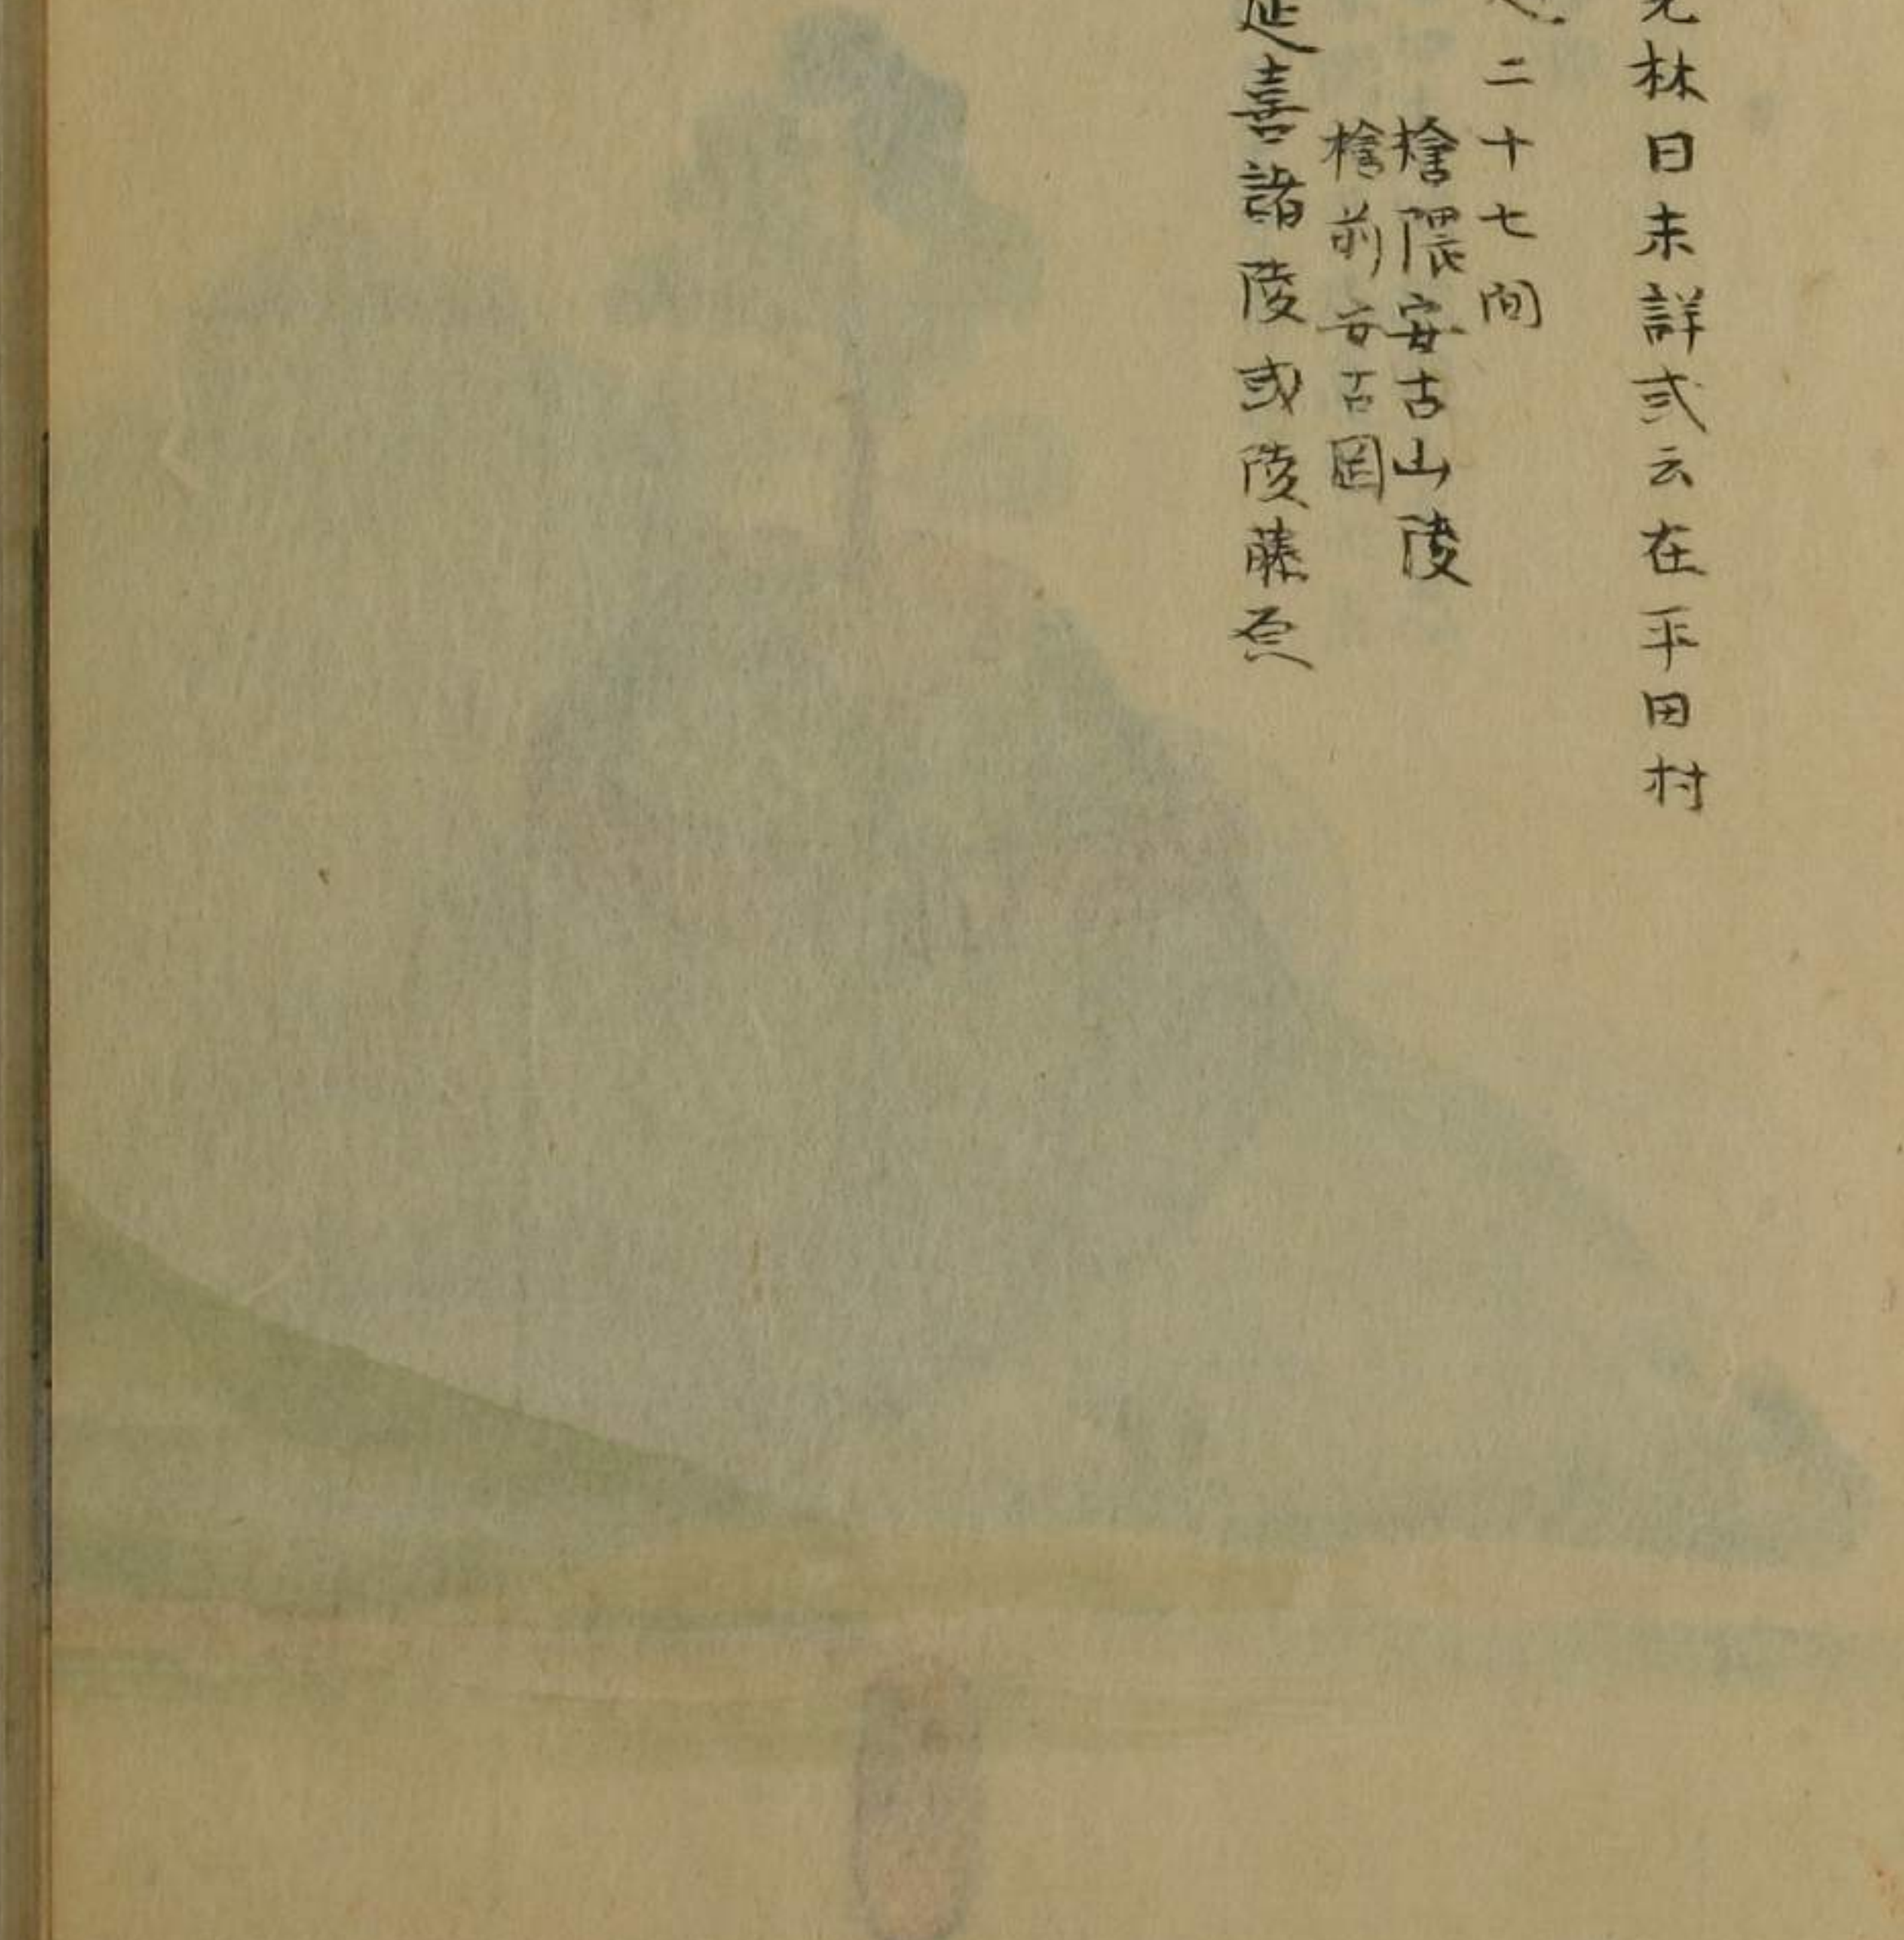 林曰未詳或云在平田村
二十七间
檜隈安古山陵
檜前安古岡
延喜諸陵或陵藤原